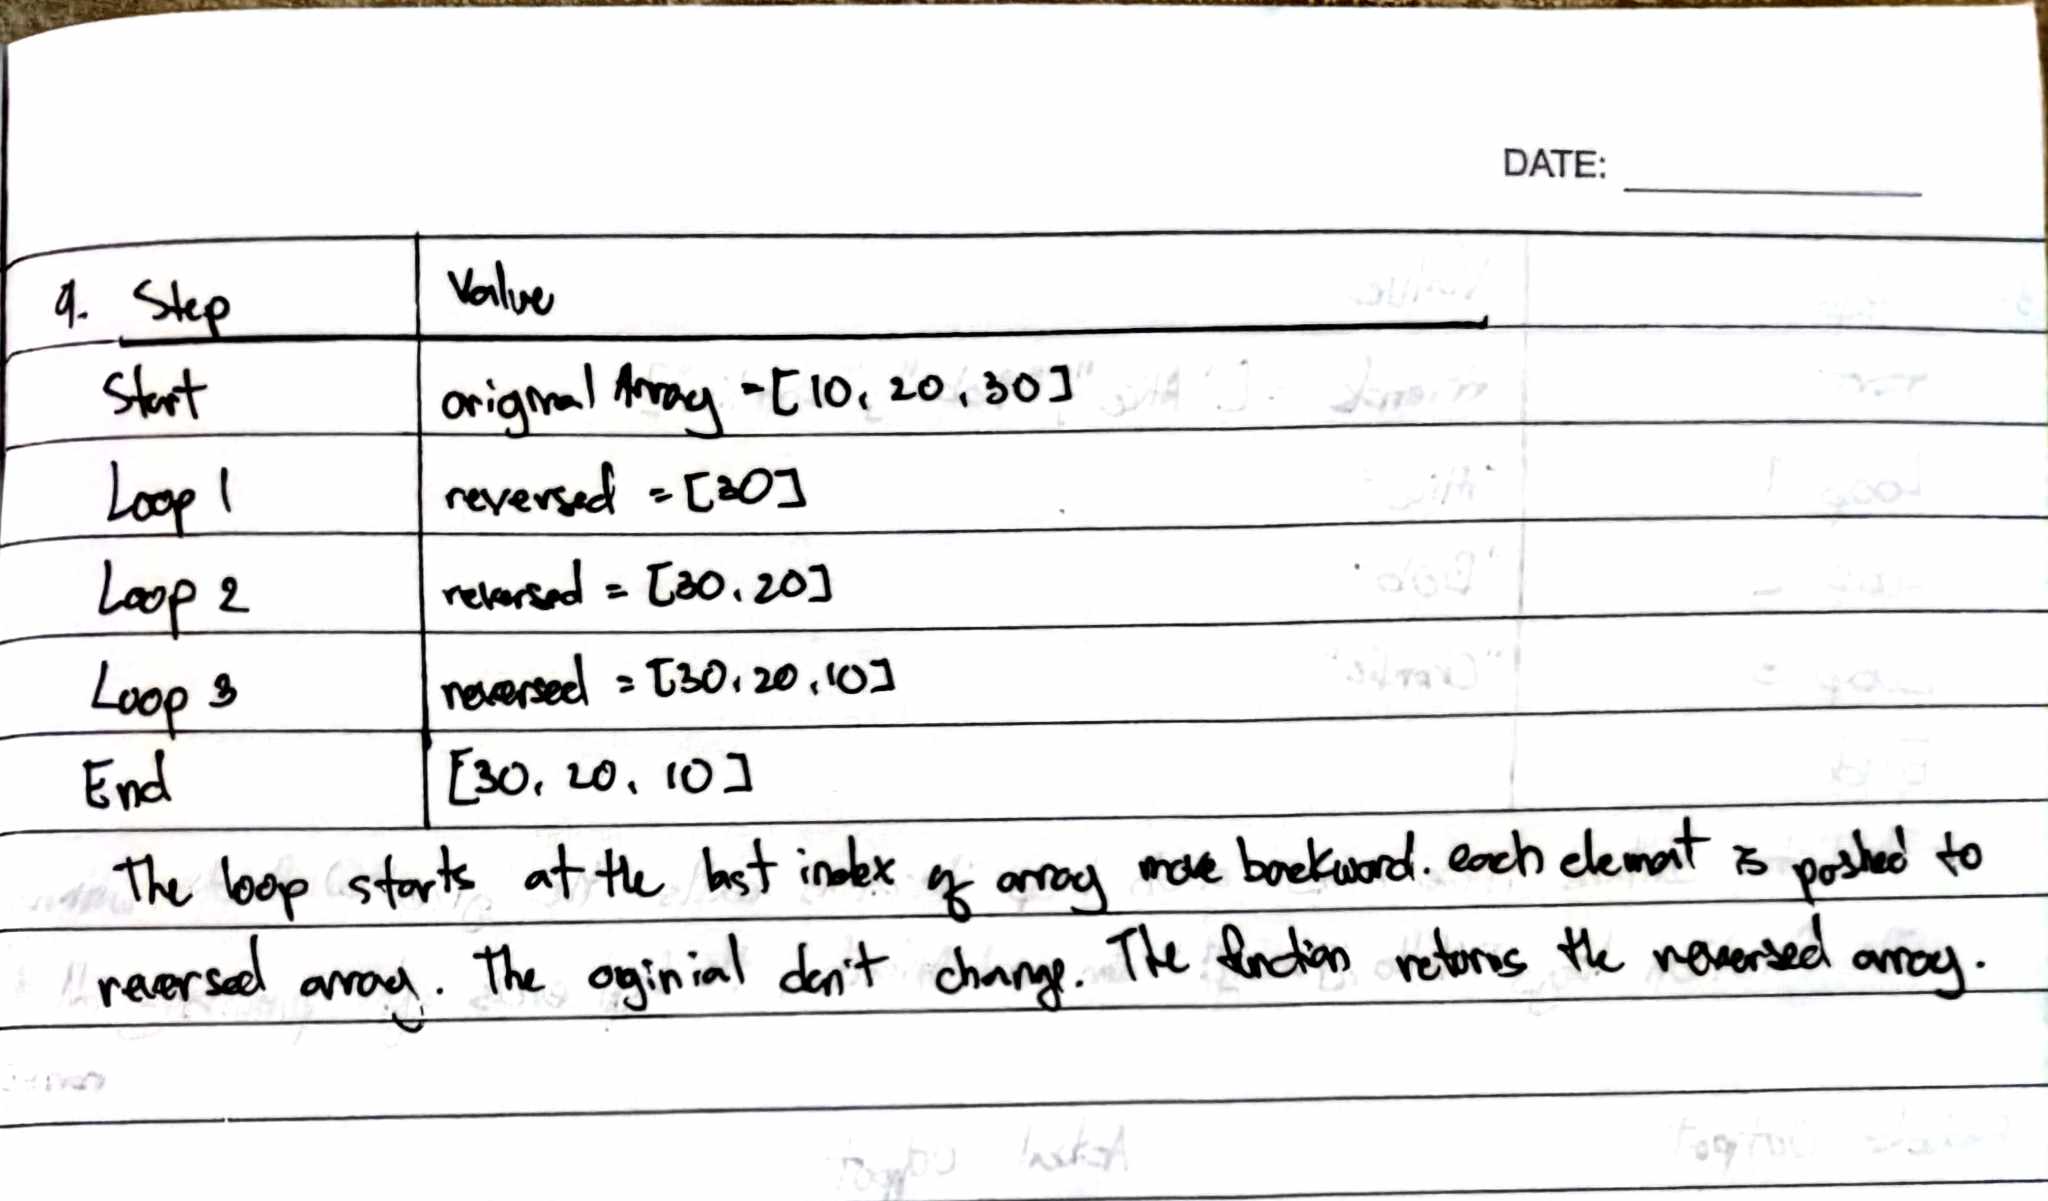 DATE:
9. Step Value
Start original Array = [10, 20, 30]
Loop 1 reversed = [30]
Loop 2 reversed = [30, 20]
Loop 3 reversed = [30, 20, 10]
End [30, 20, 10]
The loop starts at the last index of array move backward. each element is pushed to
reversed array. The oginial don't change. The function returns the reversed array.